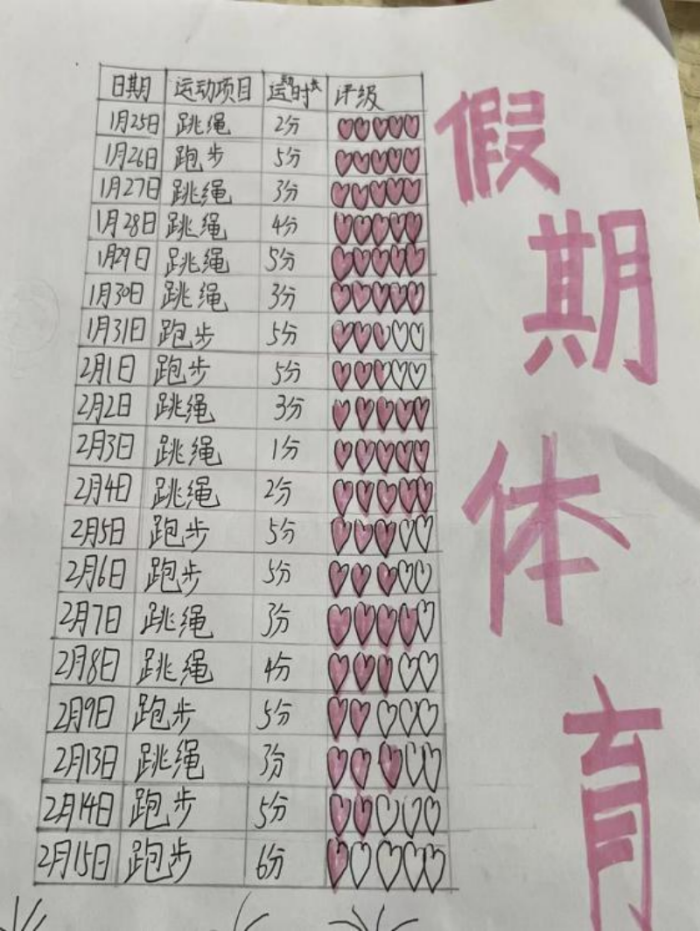 日期 运动项目 运动时长 评级
1月25日 跳绳 2分
1月26日 跑步 5分
1月27日 跳绳 3分
1月28日 跳绳 4分
1月29日 跳绳 5分
1月30日 跳绳 3分
1月31日 跑步 5分
2月1日 跑步 5分
2月2日 跳绳 3分
2月3日 跳绳 1分
2月4日 跳绳 2分
2月5日 跑步 5分
2月6日 跑步 5分
2月7日 跳绳 3分
2月8日 跳绳 4分
2月9日 跑步 5分
2月13日 跳绳 3分
2月14日 跑步 5分
2月15日 跑步 6分
假期体育